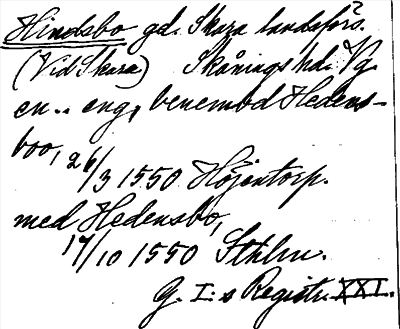 Hindsbo gd. Skara landsförs.?
(Vid Skara) Skånings hd. Vg.
en .. eng, benemod Hedens-
boo, 26/3 1550 Höjentorp.
med Hedensbo,
17/10 1550 Sthlm.
G. I:s Registr. XXI.